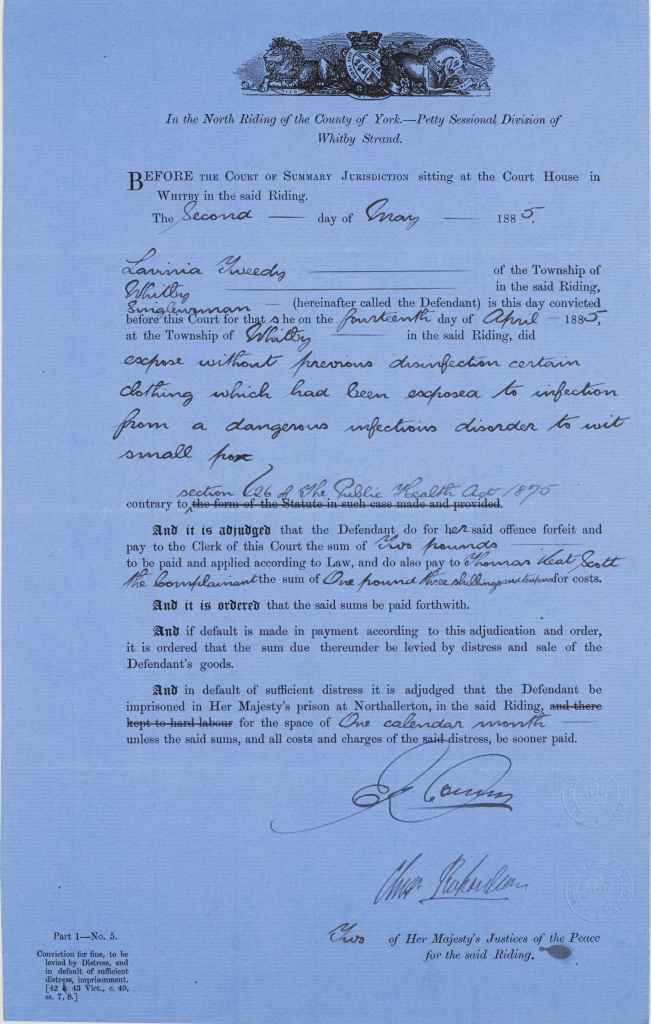 In the North Riding of the County of York.—Petty Sessional Division of
Whitby Strand.
BEFORE THE COURT OF SUMMARY JURISDICTION sitting at the Court House in
WHITBY in the said Riding.
The Second — day of May — 1885.
Lavinia Tweedy of the Township of
Whitby in the said Riding,
Singlewoman — (hereinafter called the Defendant) is this day convicted
before this Court for that she on the fourteenth day of April — 1885,
at the Township of Whitby in the said Riding, did
expose without previous disinfection certain
clothing which had been exposed to infection
from a dangerous infectious disorder to wit
small pox
section 126 of The Public Health Act 1875
contrary to the form of the Statute in such case made and provided.
And it is adjudged that the Defendant do for her said offence forfeit and
pay to the Clerk of this Court the sum of Two pounds
to be paid and applied according to Law, and do also pay to Thomas Keat Scott
the Complainant the sum of One pound three shillings for costs.
And it is ordered that the said sums be paid forthwith.
And if default is made in payment according to this adjudication and order,
it is ordered that the sum due thereunder be levied by distress and sale of
the Defendant's goods.
And in default of sufficient distress it is adjudged that the Defendant be
imprisoned in Her Majesty's prison at Northallerton, in the said Riding, and there
kept to hard labour for the space of One calendar month —
unless the said sums, and all costs and charges of the said distress, be sooner paid.
Richardson
Two of Her Majesty's Justices of the Peace
for the said Riding.
Part 1—No. 5.
Conviction for fine, to be
levied by Distress, and
in default of sufficient
distress, imprisonment.
[42 & 43 Vict., c. 49,
ss. 7, 8.]